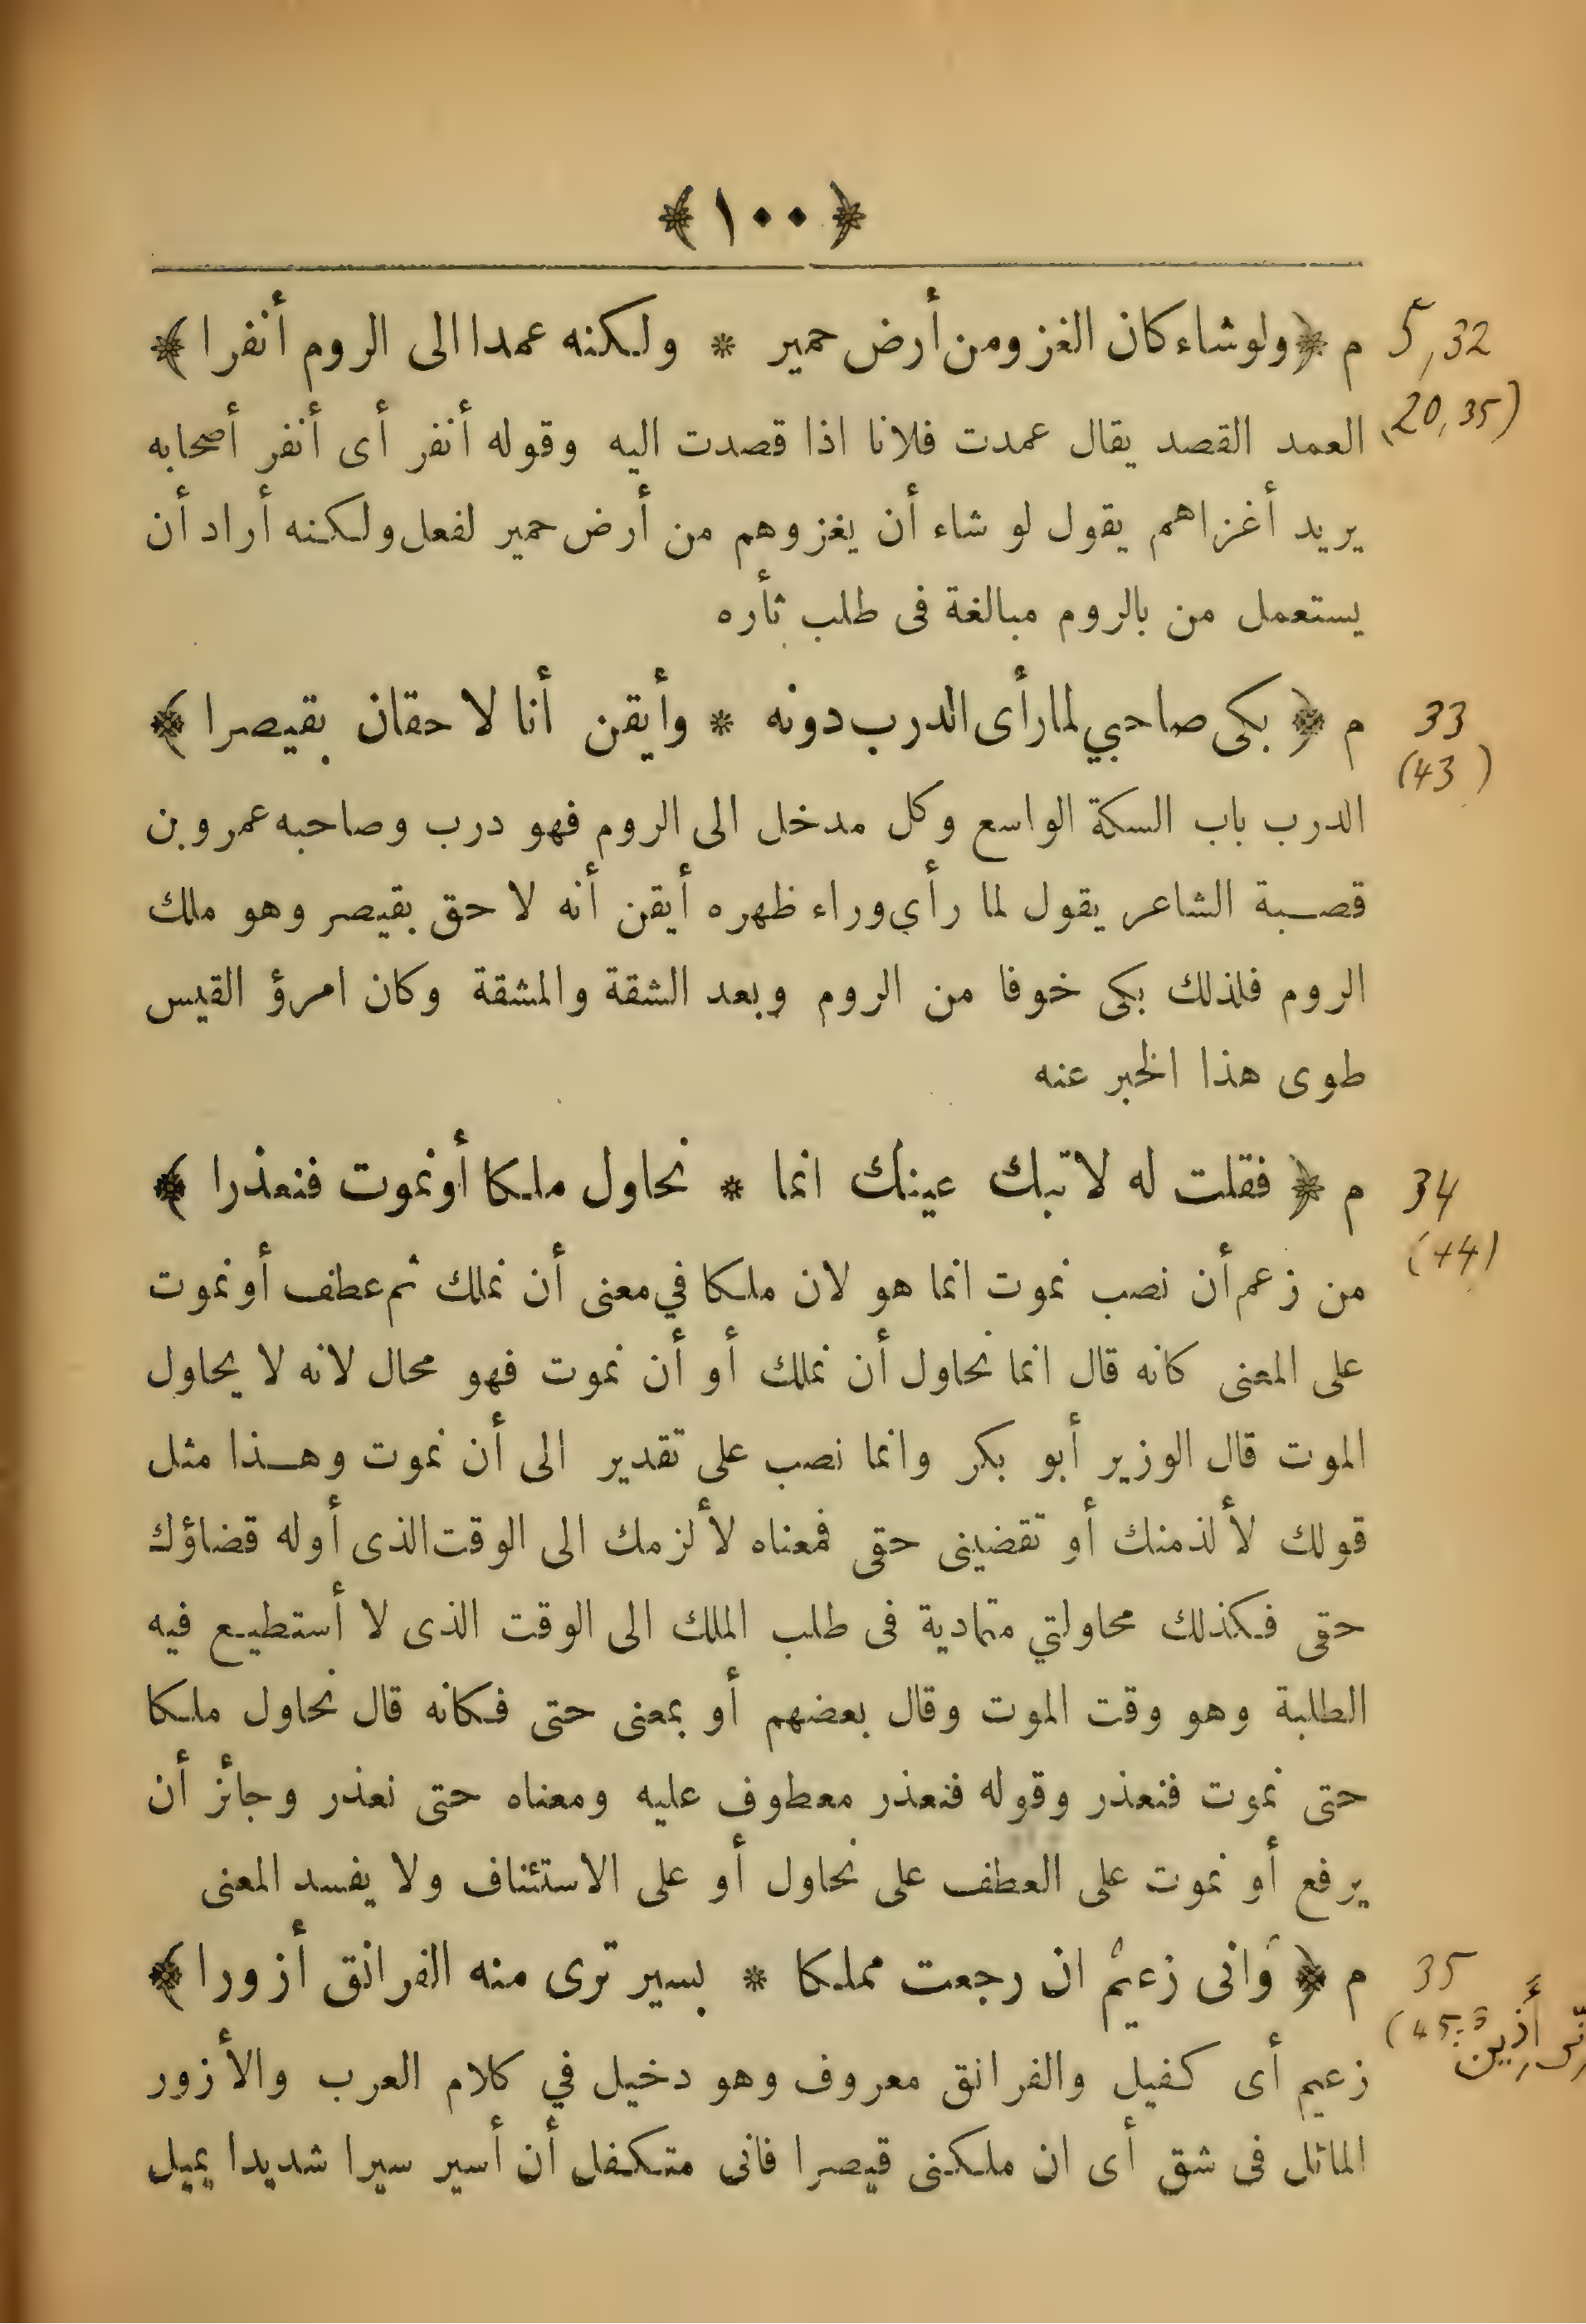 ﴿ ١٠٠ ﴾
م ﴿ ولو شاء كان الغزو من أرض حمير * ولكنه عمدا الى الروم أنفرا ﴾ 5,32
العمد القصد يقال عمدت فلانا اذا قصدت اليه وقوله أنفر أى أنفر أصحابه (20,35)
يريد أغزاهم يقول لو شاء أن يغزوهم من أرض حمير لفعل ولكنه أراد أن
يستعمل من بالروم مبالغة فى طلب ثأره
م ﴿ بكى صاحبي لما رأى الدرب دونه * وأيقن أنا لاحقان بقيصرا ﴾ 33
(43)
الدرب باب السكة الواسع وكل مدخل الى الروم فهو درب وصاحبه عمرو بن
قصبة الشاعر يقول لما رأي وراء ظهره أيقن أنه لاحق بقيصر وهو ملك
الروم فلذلك بكى خوفا من الروم وبعد الشقة والمشقة وكان امرؤ القيس
طوى هذا الخبر عنه
م ﴿ فقلت له لا تبك عينك انما * نحاول ملكا أو نموت فنعذرا ﴾ 34
(44)
من زعم أن نصب نموت انما هو لان ملكا في معنى أن نملك ثم عطف أو نموت
على المعنى كانه قال انما نحاول أن نملك أو أن نموت فهو محال لانه لا يحاول
الموت قال الوزير أبو بكر وانما نصب على تقدير الى أن نموت وهذا مثل
قولك لألذمنك أو تقضينى حقى فمعناه لألزمك الى الوقت الذى أوله قضاؤك
حقى فكذلك محاولتي متمادية فى طلب الملك الى الوقت الذى لا أستطيع فيه
الطلبة وهو وقت الموت وقال بعضهم أو بمعنى حتى فكانه قال نحاول ملكا
حتى نموت فنعذر وقوله فنعذر معطوف عليه ومعناه حتى نعذر وجائز أن
يرفع أو نموت على العطف على نحاول أو على الاستئناف ولا يفسد المعنى
م ﴿ وانى زعيم ان رجعت مملكا * بسير ترى منه الفرانق أزورا ﴾ 35
زعيم أى كفيل والفرانق معروف وهو دخيل في كلام العرب والأزور
المائل فى شق أى ان ملكنى قيصرا فانى متكفل أن أسير سيرا شديدا يميل